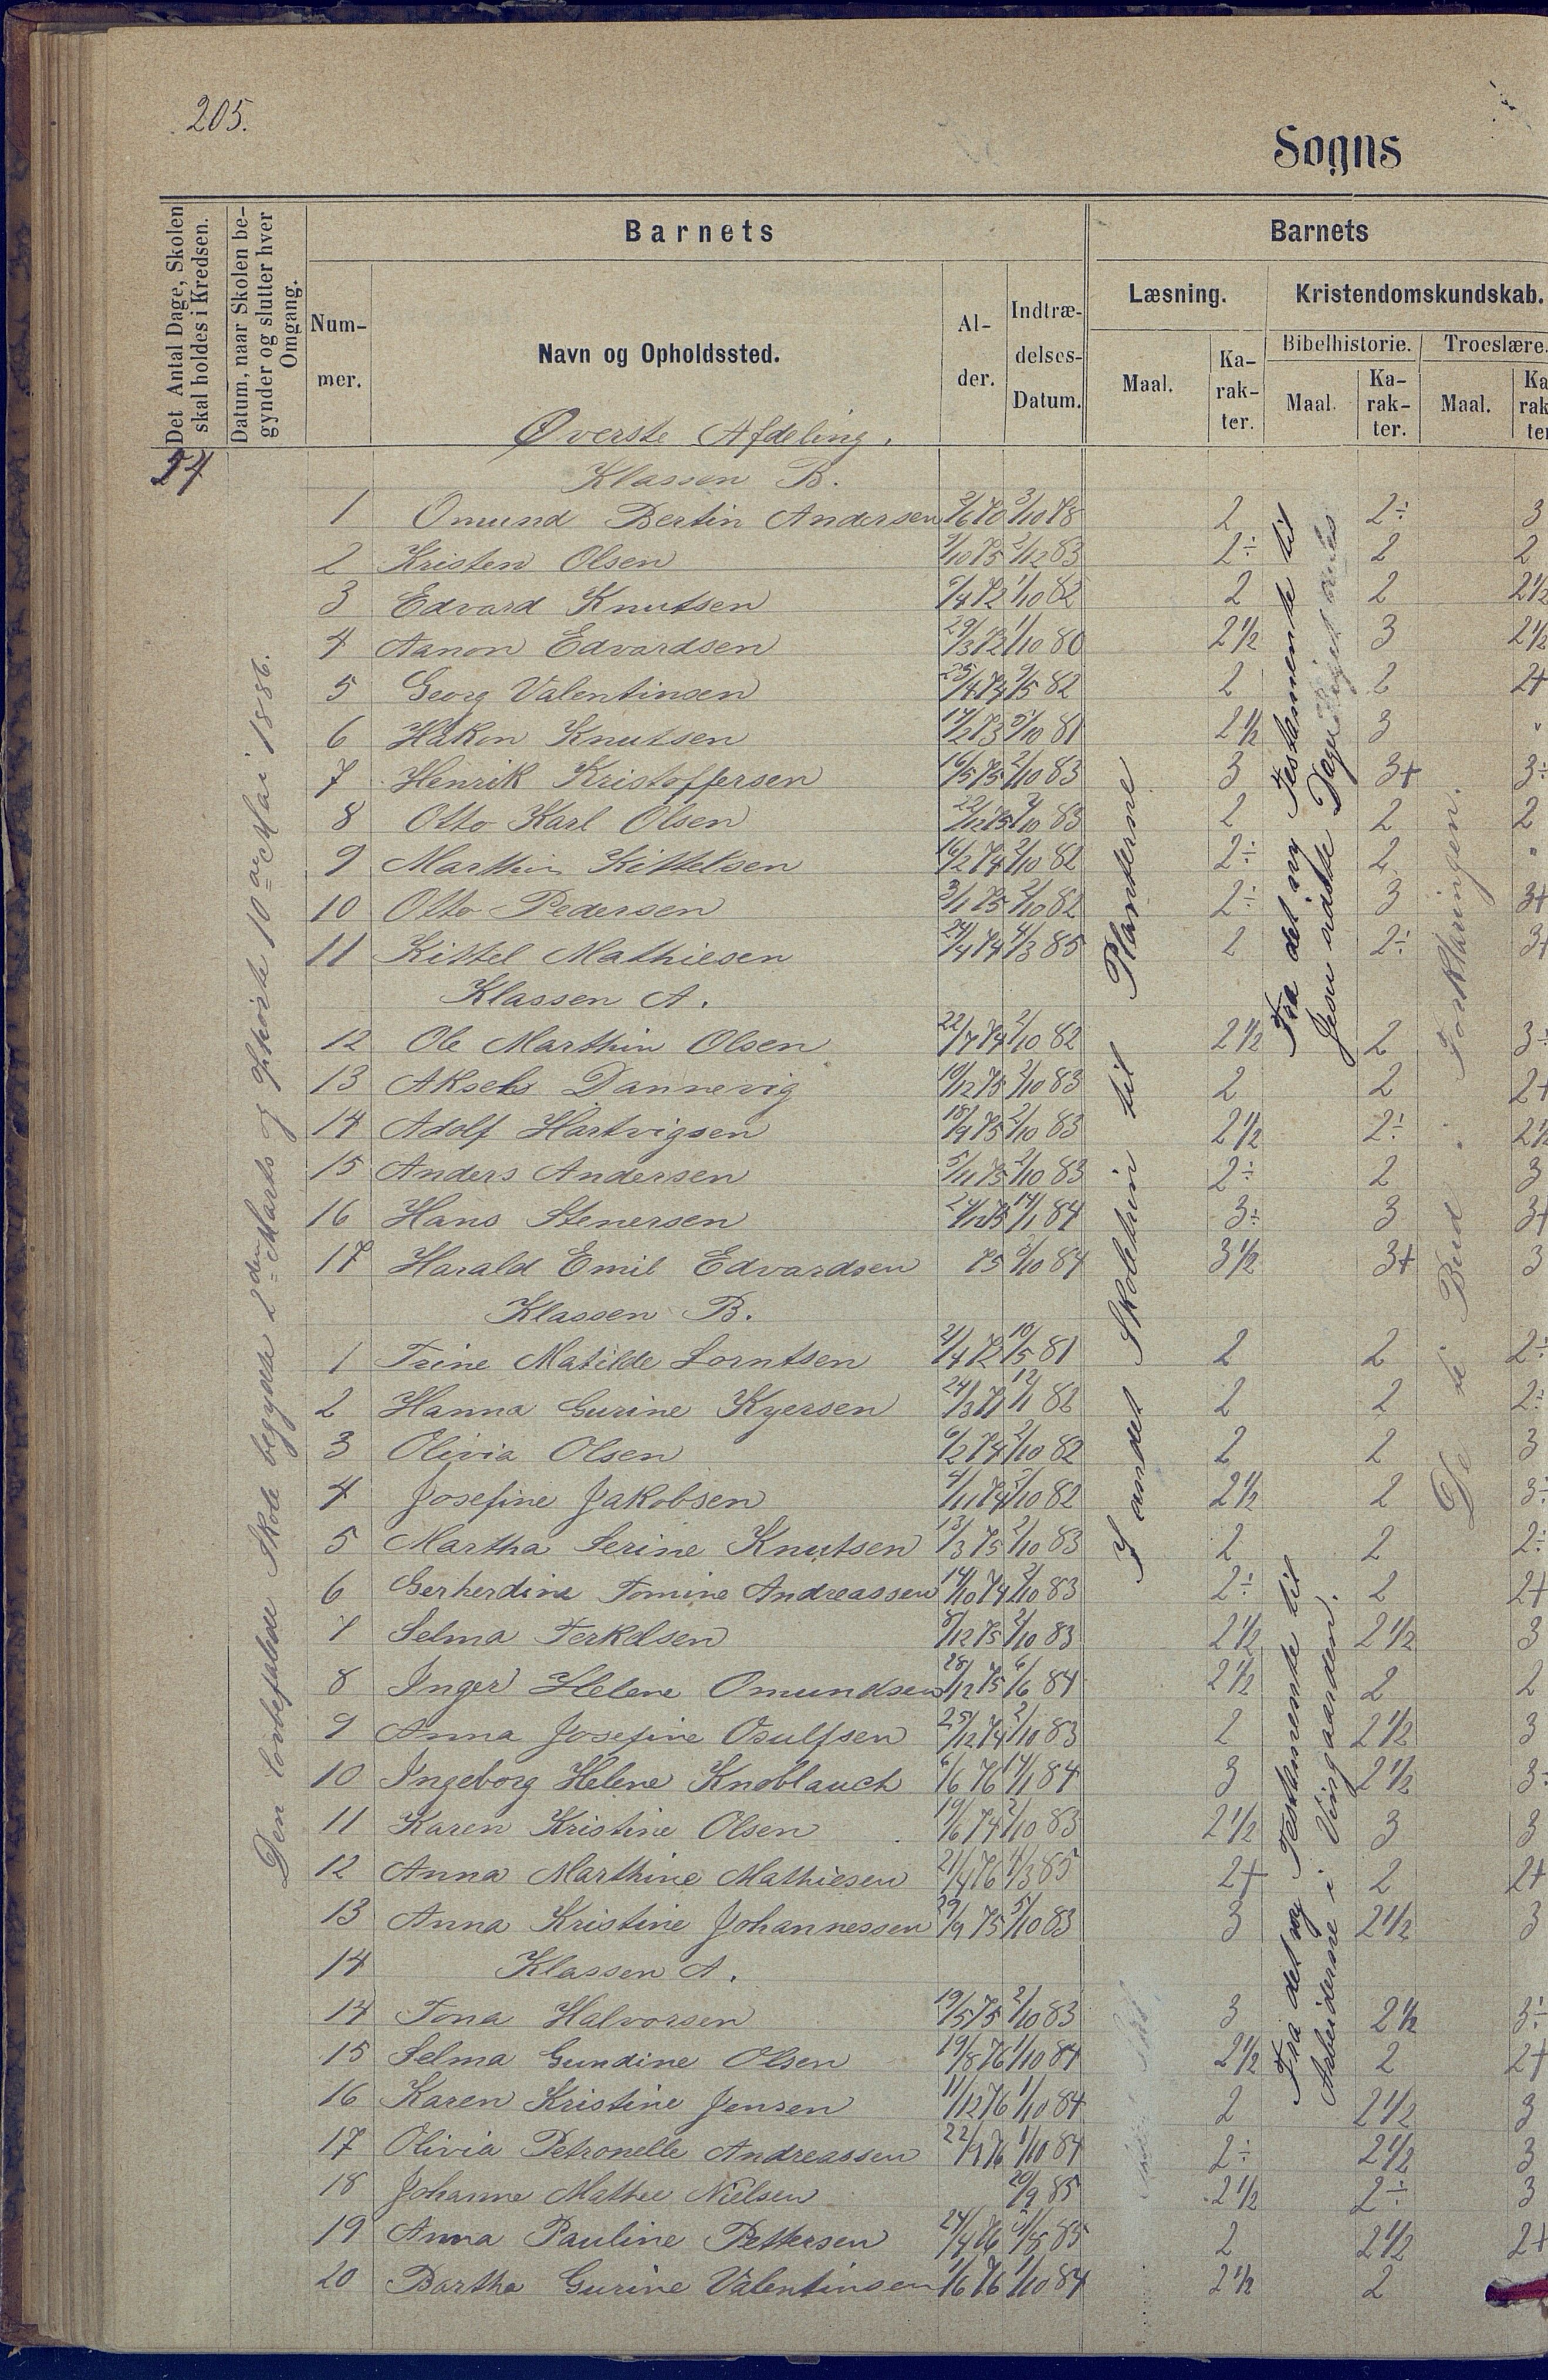 205.
Sogns
Det Antal Dage, Skolen skal holdes i Kredsen.
Datum, naar Skolen begynder og slutter hver Omgang.
Barnets
Barnets
Num-
mer.
Navn og Opholdssted.
Al-
der.
Indtræ-
delses-
Datum.
Læsning.
Kristendomskundskab.
Maal.
Ka-
rak-
ter.
Bibelhistorie.
Troeslære.
Maal.
Ka-
rak-
ter.
Maal.
Øverste Afdeling.
Klassen B.
1 Omund Bertin Andersen 3/10 78 2 2÷ 3
2 Kristen Olsen 9/10 75 2/12 83 2÷ 2 2
3 Edvard Knutsen 6/4 72 1/10 82 2 2 2½
4 Aanon Edvardsen 29/3 72 1/10 80 2½ 3 2½
5 Georg Valentinsen 25/4 74 9/5 82 2 2 2+
6 Håkon Knutsen 17/2 73 5/10 81 2½ 3 "
7 Henrik Kristoffersen 16/5 75 2/10 83 3 3+ 3÷
8 Otto Karl Olsen 22/12 75 2/10 83 2 2 2
9 Marthin Kittelsen 16/2 74 2/10 82 2÷ 2 "
10 Otto Pedersen 3/1 75 2/10 82 2÷ 3 3+
11 Kittel Mathiesen 24/4 74 4/3 85 2 2÷ 3+
Klassen A.
12 Ole Marthin Olsen 22/7 74 2/10 82 2½ 2 3÷
13 Aksel Dannevig 10/12 75 2/10 83 2 2 2+
14 Adolf Hartvigsen 18/9 75 2/10 83 2½ 2÷ 2½
15 Anders Andersen 5/11 75 2/10 83 2÷ 2 3
16 Hans Stenersen 14/1 84 3÷ 3 3+
17 Harald Emil Edvardsen 75 /10 84 3½ 3+ 3
Klassen B.
1 Trine Matilde Lorntsen 21/4 72 10/5 81 2 2 2÷
2 Hanna Gurine Kyersen 24/3 71 12/1 82 2 2 2÷
3 Olivia Olsen 6/2 74 2/10 82 2 2 3
4 Josefine Jakobsen 4/11 74 2/10 82 2½ 2 3÷
5 Martha Serine Knutsen 13/3 75 2/10 83 2 2 2÷
6 Gerherdine Tomine Andreassen 14/10 74 2/10 83 2÷ 2 2+
7 Selma Terkelsen 8/12 75 2/10 83 2½ 2½ 3
8 Inger Helene Omundsen 28/12 75 6/6 84 2½ 2 2
9 Anna Josefine Osulfsen 25/12 74 2/10 83 2 2½ 3
10 Ingeborg Helene Knoblauch 6/6 76 14/1 84 3 2½ 3÷
11 Karen Kristine Olsen 19/6 74 2/10 83 2½ 3 3
12 Anna Marthine Mathiesen 21/4 76 4/3 85 2+ 2 2+
13 Anna Kristine Johannessen 29/9 75 5/10 83 3 2½ 3
14 Klassen A.
14 Tona Halvorsen 19/5 75 2/10 83 3 2½ 3÷
15 Selma Gundine Olsen 19/8 76 1/10 84 2½ 2 2+
16 Karen Kristine Jensen 11/12 76 1/10 84 2 2½ 3
17 Olivia Petronelle Andreassen 22/9 76 1/10 84 2÷ 2½ 3
18 Johanne Mathee Nielsen 20/9 85 2½ 2÷ 3
19 Anna Pauline Pettersen 24/4 76 85 2 2½ 2+
20 Bartha Gurine Valentinsen 1/6 76 1/10 84 2½ 2
Den lovbefalede Skole begyndte 2den Marts og ophørte 10de Mai 1886.
I andet Skoletrin til Planterne
Fra det ny Testamente til
Jesu sidste
Fra det ny Testamente til
Arbeiderne i Vingaarden.
De ti Bud. Forklaringen.